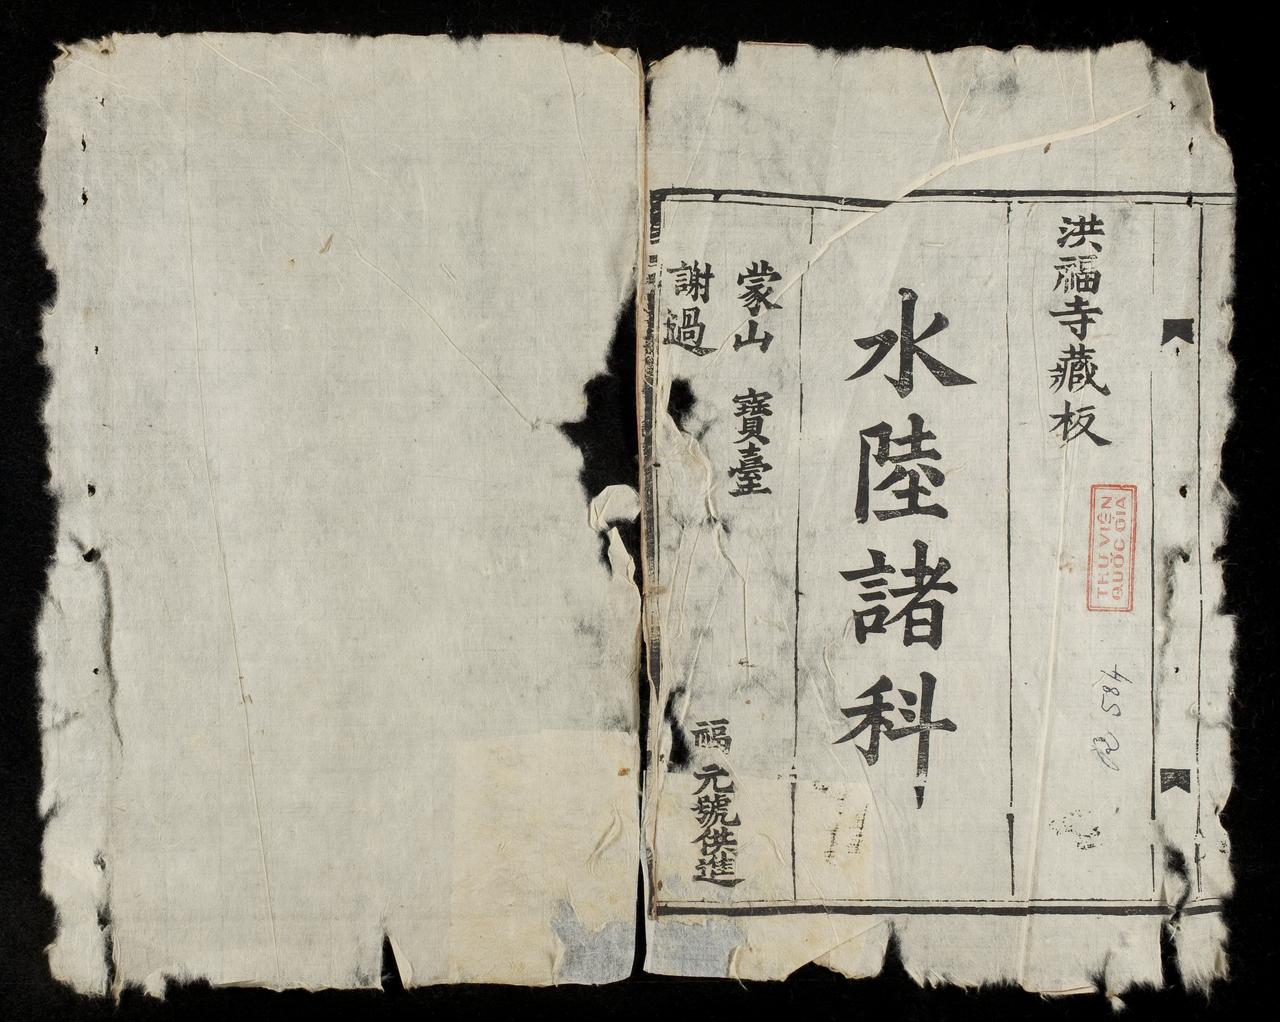 洪福寺藏板
水陸諸科
蒙山 寶臺
謝過
福元號供進
THƯ VIỆN
QUỐC GIA
R 584